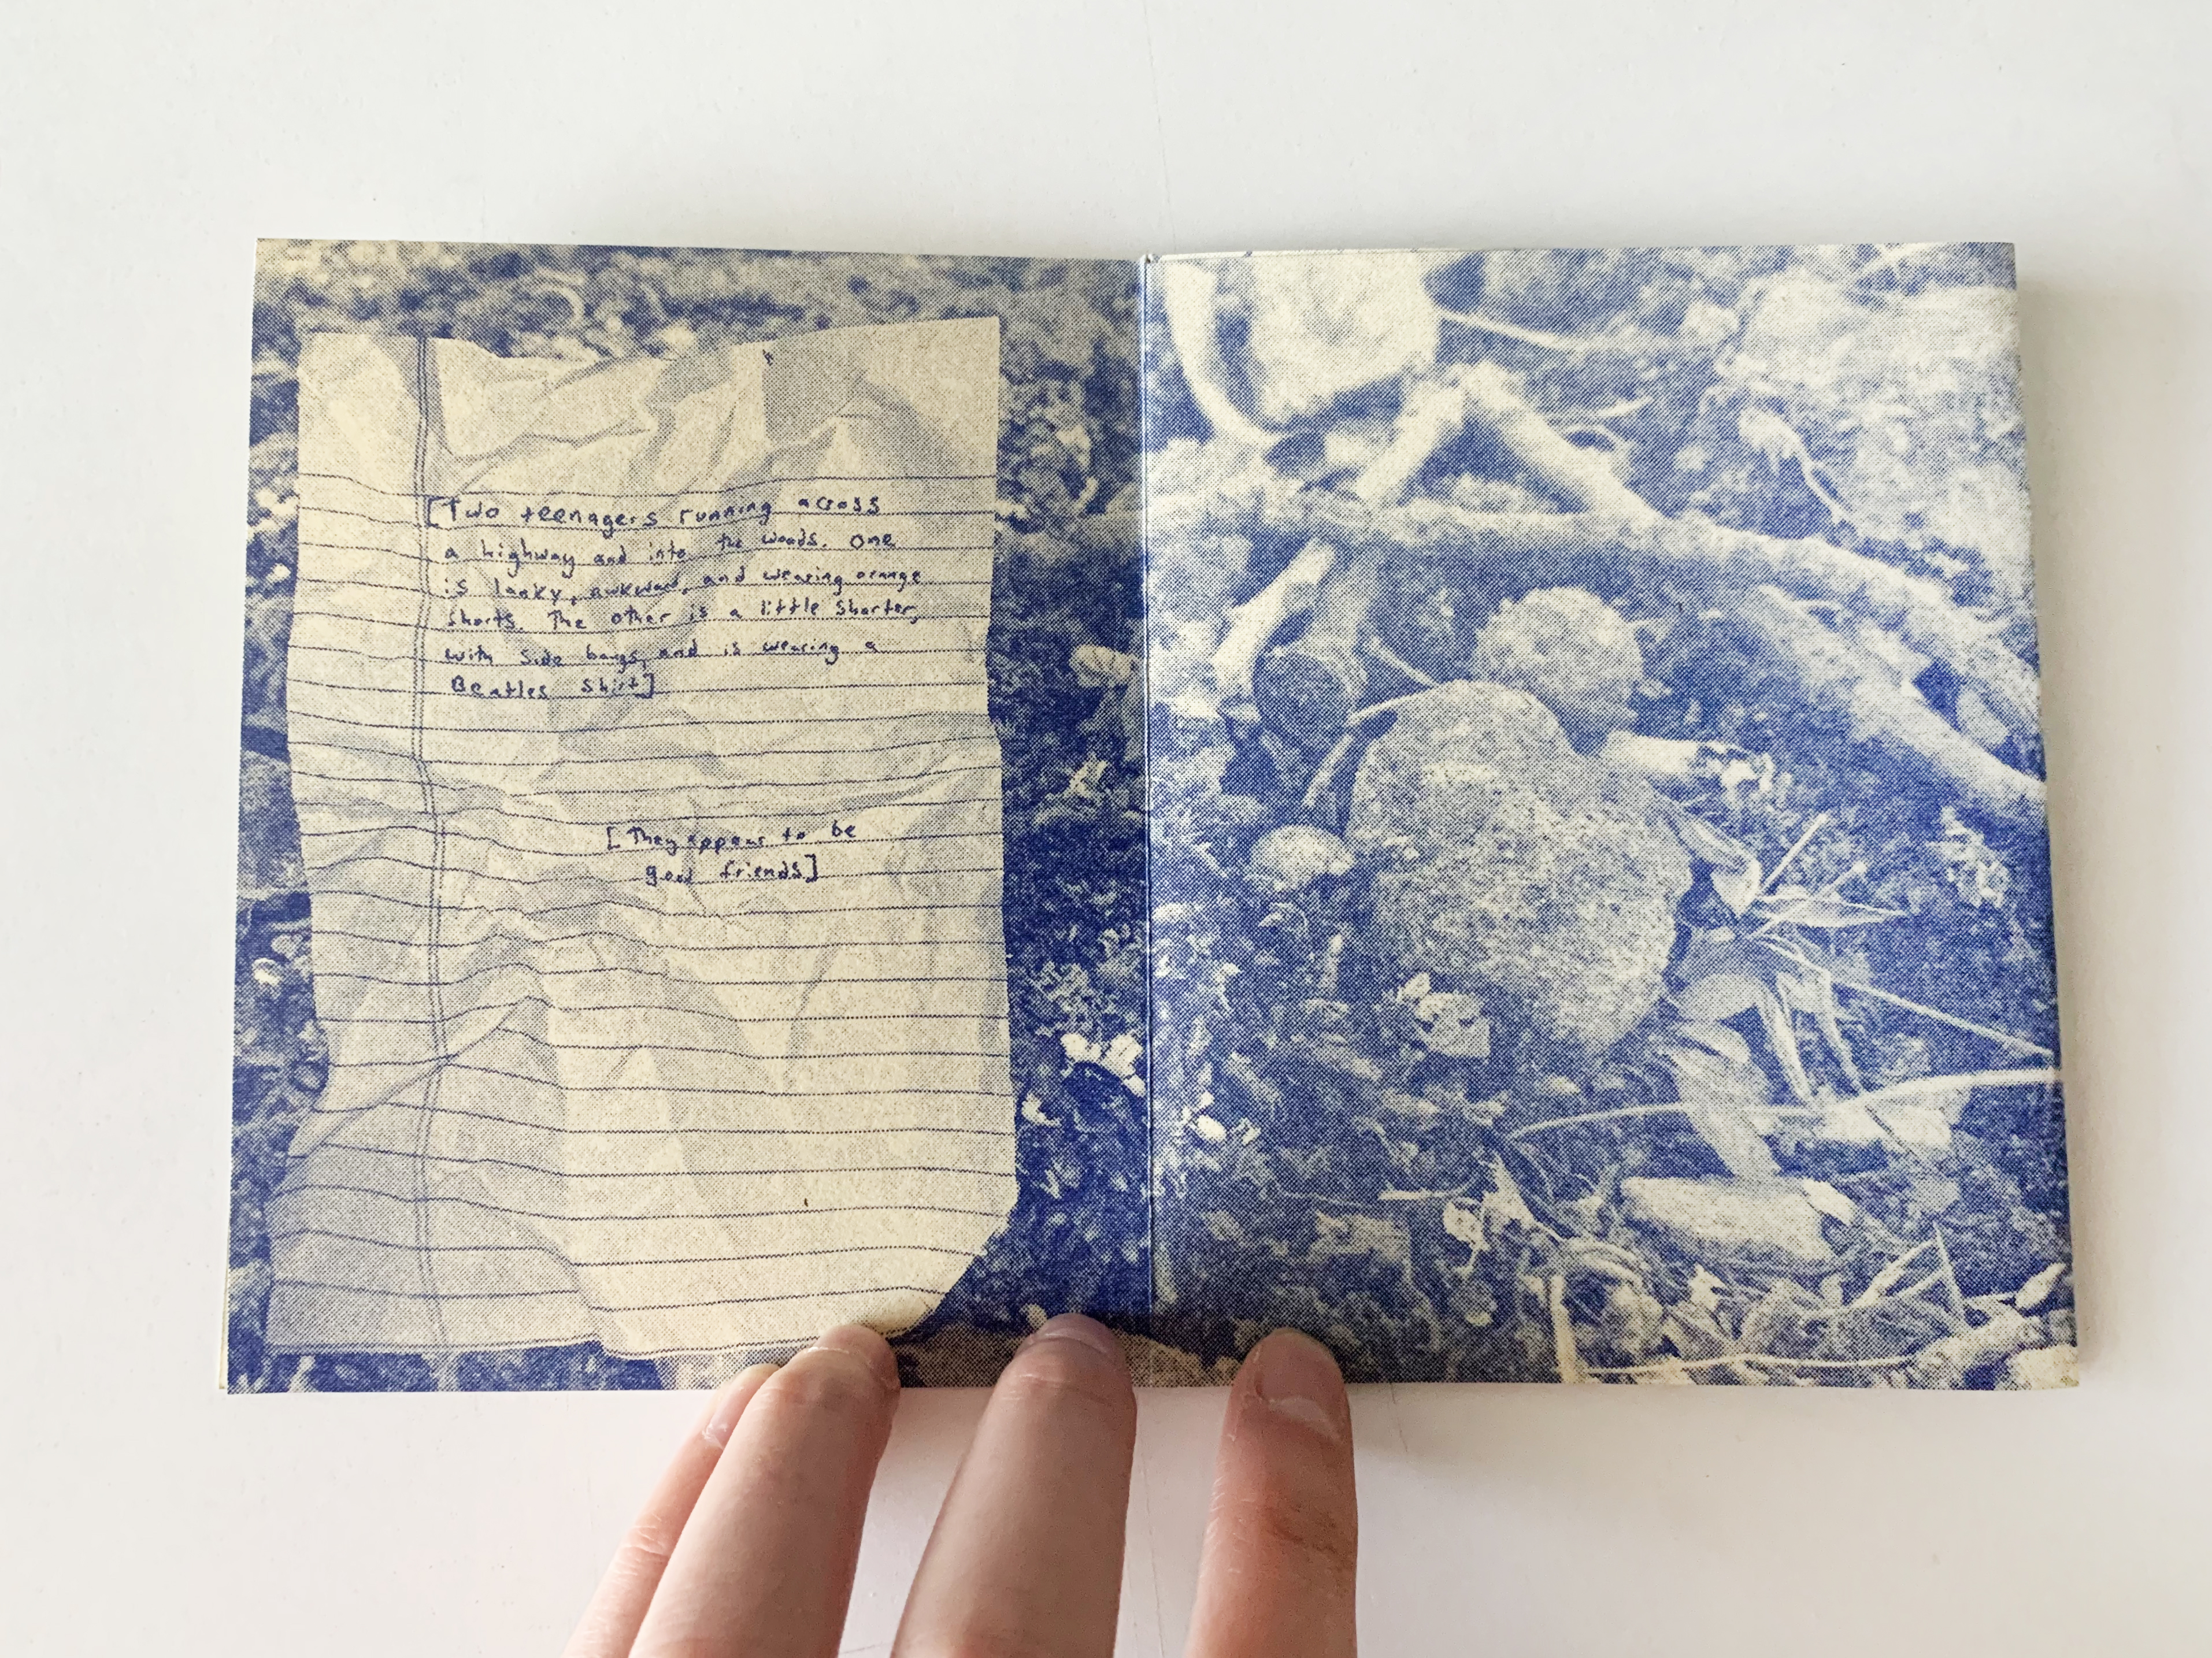 [Two teenagers running across
a highway and into the woods. One
is lanky, awkward, and wearing orange
shorts. The other is a little shorter,
with side bangs, and is wearing a
Beatles shirt]
[They appear to be
good friends]